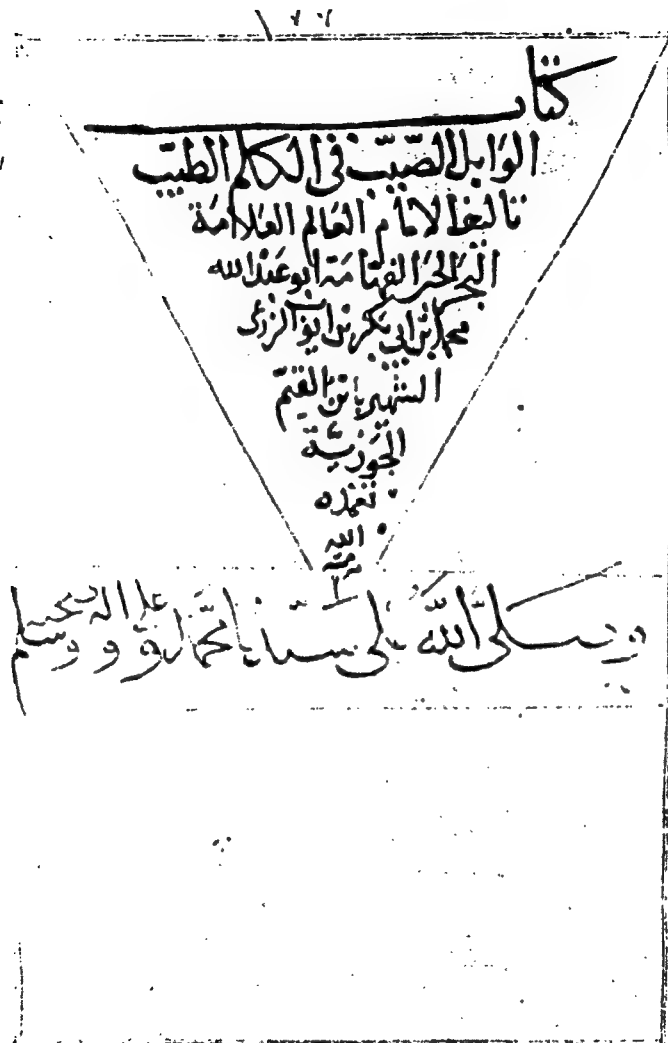 كتاب
الوابل الصيب فى الكلم الطيب
تاليف الامام العالم العلامة
البحر الحبر الفهامة ابو عبد الله
محمد ابن ابي بكر بن ايوب الزرعي
الشهير بابن القيم
الجوزية
تغمده
الله
برحمته
وصلى الله على سيدنا محمد وعلى اله وصحبه وسلم